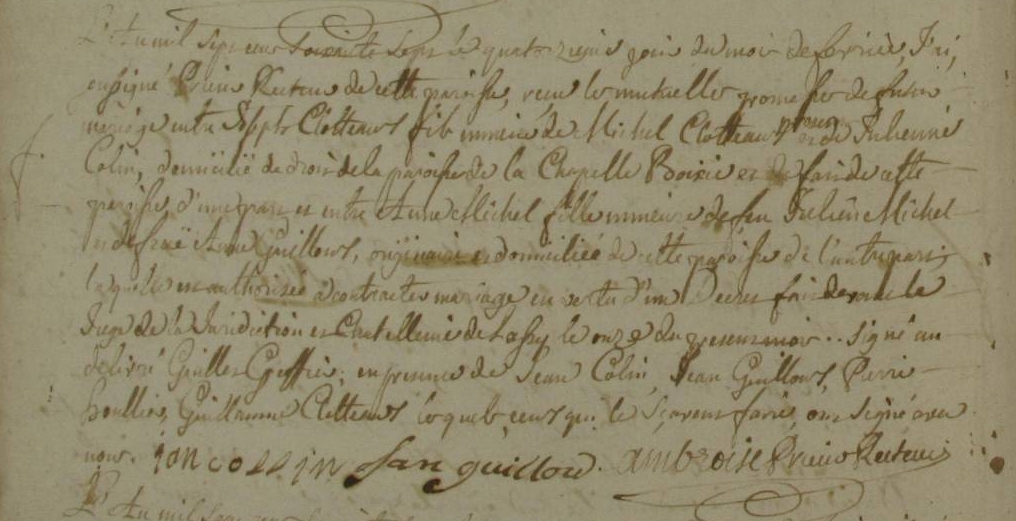 L'An mil sept cent soixante sept le quatorzieme jour du mois de fevrier, J'ai,
soussigné Prieur Recteur de cette paroisse, recu les mutuelles promesses de futur
mariage entre Clotteaux fils mineur de Michel Clotteaux et de Julienne
Colin, domicilié de droit de la paroisse de la Chapelle Boixie et de fait de cette
paroisse, d'une part et entre Anne Michel fille mineure de feu Julien Michel
et de Anne Guilloux, originaire et domiciliée de cette paroisse de l'autre part,
laquelle est authorisée à contracter mariage en vertu d'un Decret fait devant le
Juge de la Jurisdiction et Chatellenie de le onze du present mois .. signé au
délivré Guilles en presence de Jean Colin, Jean Guilloux, Pierre
Guillaume Clotteaux lesquels, ceux qui le sçavent faire, ont signé avec
nous. jan collin Jan guillou. ambroise Prieur Recteur
L'An mil sept cent